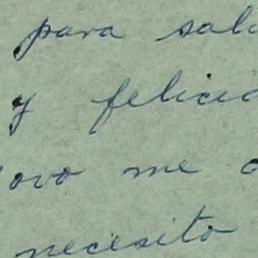 para salu
y felicid
ovo me
necesito